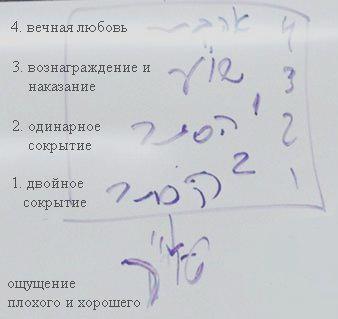 4. вечная любовь
4
3. вознаграждение и
наказание
שו"ע 3
2. одинарное
сокрытие
הסתר 1 2
1. двойное
сокрытие
הסתר 2 1
ощущение
плохого и хорошего